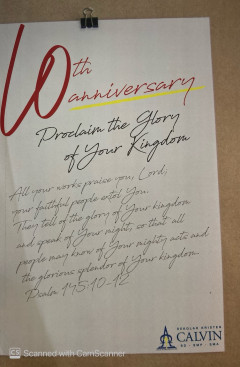 10th
anniversary
Proclaim the Glory
of Your Kingdom
All your works praise you, Lord;
your faithful people extol You.
They tell of the glory of Your kingdom
and speak of Your might, so that all
people may know of Your mighty acts and
the glorious splendor of Your kingdom
Psalm 145:10-12
SEKOLAH KRISTEN
CALVIN
SD · SMP · SMA
CS Scanned with CamScanner